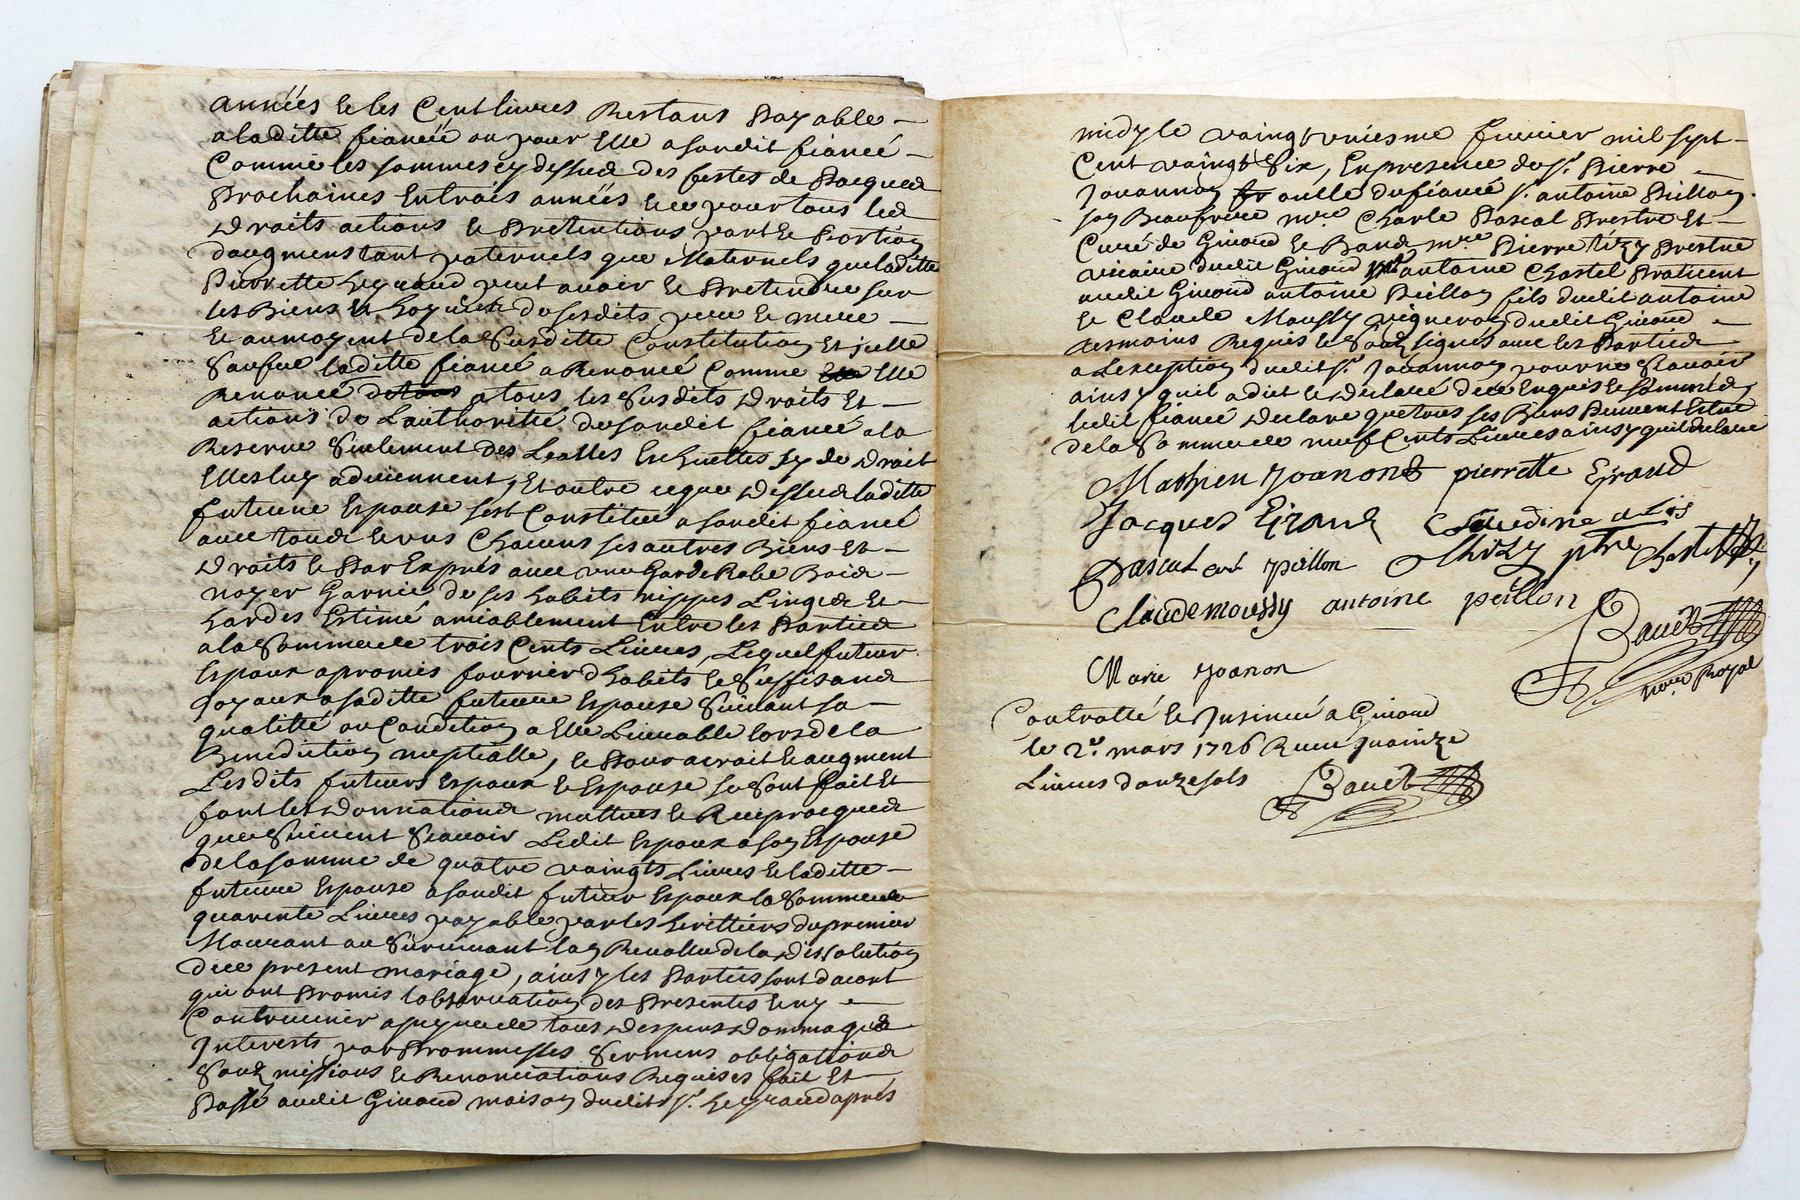 années & les Cent livres Restans Payable
a laditte fiancée ou pour Elle a sondit fiancé
Comme les sommes cy dessus des festes de Pacques
Prochaines En trois années & ce pour tous les
Droits actions & Pretentions part & Portion
daugmens tant paternels que Maternels que laditte
Pierrette peut avoir & Pretendre sur
les Biens & de sesdits pere & mere
& aumoyent de la Susditte Constitution Et icelle
Saufve laditte fiancé a Renoncé Comme Elle
Renonce a tous les Susdits Droits Et
actions de Lauthorité de sondit fiancé a la
Reserve Seulement des Laisses Echuettes sy de Droit
Elles luy adviennent, Et outre ce que Dessus laditte
future Espouse sest Constitué a sondit fiancé
avec tous & uns Chacuns ses autres Biens Et
Droits & Par Exprés avec une GardeRobe Bois
noyer Garnie de ses habits nippes Linges &
hardes Estimé amiablement Entre les Parties
a la Somme de trois Cents Livres, Lequel futeur
Espoux a promis fournir d habits & Suffisans
Joyaux a saditte future Espouse Suivant sa
qualitté ou Condition a Elle Livrable lors de la
Benediction nuptialle, & Pour acroit & augment
Lesdits futeurs Espoux & Espouse se Sont fait Et
font les Donnations mattues & Reciprocques
que Suivent Scavoir Ledit Espoux a son Espouse
de la somme de quatre vaingts Livres & laditte
future Espouse a sondit futeur Espoux la Somme de
quarente Livres payable par les herittiers du premier
Mourant au Survivant lan Revollu de la Dissolution
de ce present mariage, ainsy les Parties sont dacort
qui ont Promis lobservation des Presentes & ny
Contrevenir a peyne de tous Despens Dommages
Interests par Prommesses Sermens obligations
Soubmissions & Renonciations Requises fait Et
Passé audit Givord maison dudit Sr. aprés
midy le vaingt uniesme fevrier mil sept
Cent vaingt Six, En presence de Sr. Pierre
Jouannon oncle du fiancé Sr. antoine Peillon
son Beaufrere mre. Charle Pascal Prestre Et
Curé de Givord & Bans mre Pierre tizy Prestre
vicaire dudit Givord antoine Chastel Praticient
audit Givord antoine Peillon fils dudit antoine
& Claude Moussy vigneron dudit Givord
tesmoins Requis & Soub signés avec les Parties
a Lexception dudit Sr. Jouannon pour ne Scavoir
ainsy quil a dit & Declaré de ce Enquis & Sommé
ledit fiancé Declare que tous ses Biens Peuvent Estre
de la Somme de neuf Cents Livres ainsy quil declare
Mathieu Joanon pierrette Girand
Jacques Girand Claudine alis
Pascal curé peillon thizy ptre Chastel
Claude moussy antoine peillon
Baudt
Marie Joanon
nore Royal
Controllé & Insinué a Givord
le 2e. mars 1726 Receu quainze
Livres douze sols Baudt